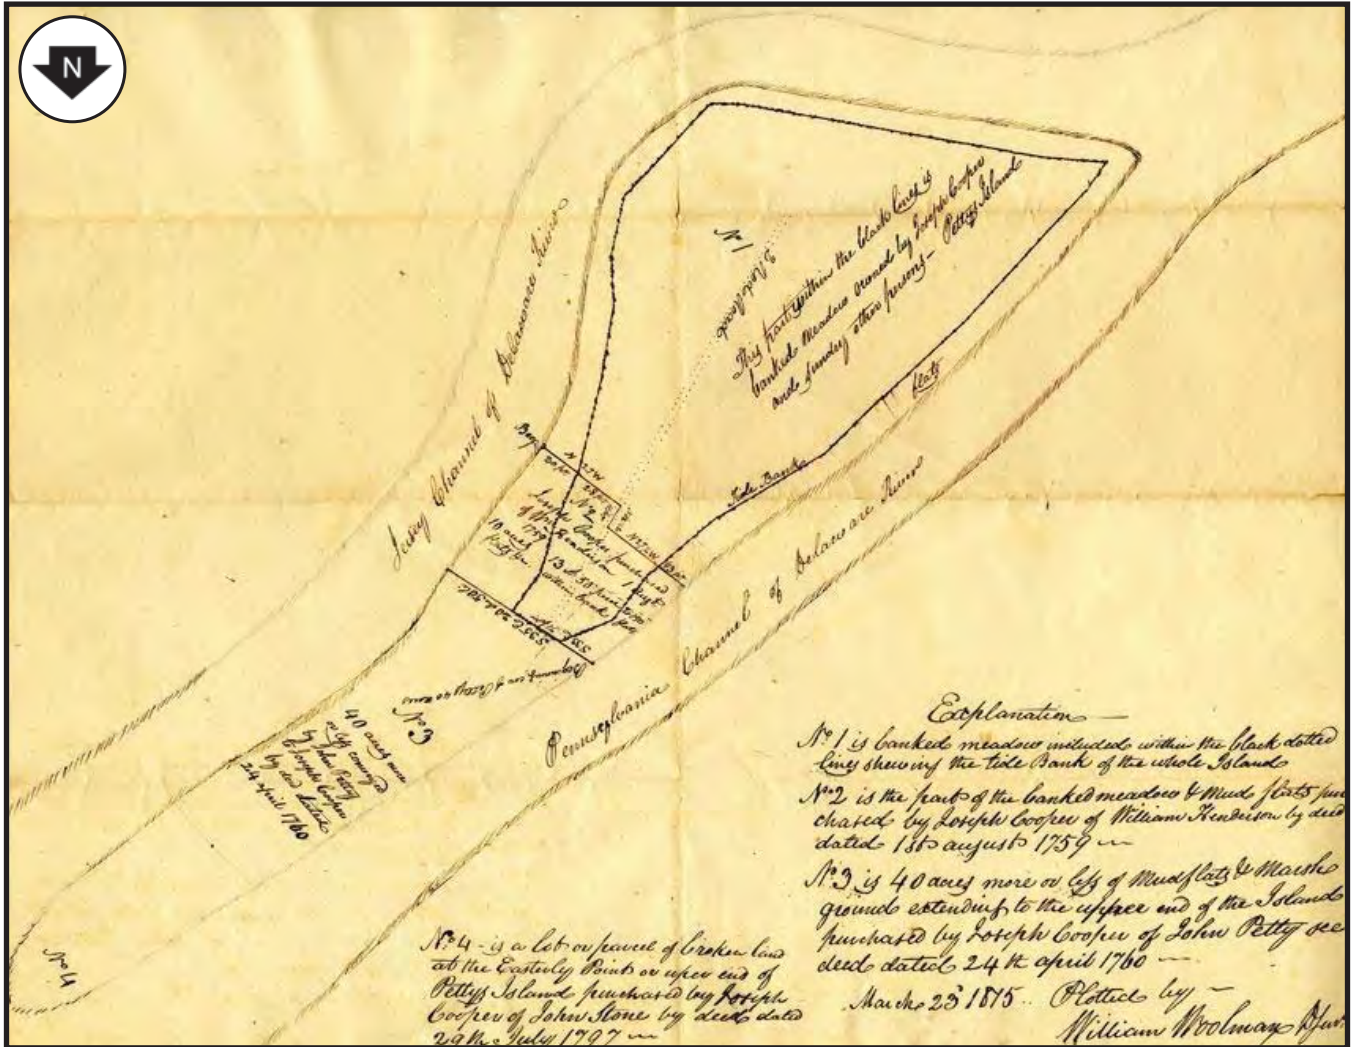 N
Jersey Channel of Delaware River
No 1
This part within the black lines is
banked Meadow owned by Joseph Cooper
and sundry other persons – Pettys Island
flats
Tide Bank
N 27 W
No 2
Joseph Cooper purchased
of Wm Henderson 1 Augt
1759
10 acres
within bank
Pennsylvania Channel of Delaware River
No 3
40 acres more
or less conveyed
by John Petty
to Joseph Cooper
by deed dated
24 april 1760
No 4
Explanation –
No 1 is banked meadow included within the black dotted
lines shewing the tide Bank of the whole Island
No 2 is the part of the banked meadow & Mud flats pur
chased by Joseph Cooper of William Henderson by deed
dated 1st august 1759
No 3 is 40 acres more or less of Mudflats & Marsh
ground extending to the upper end of the Island
purchased by Joseph Cooper of John Petty see
deed dated 24th april 1760
March 23d 1815 Plotted by –
William Woolman
No 4 - is a lot or parcel of broken land
at the Easterly Point or uper end of
Pettys Island purchased by Joseph
Cooper of John Stone by deed dated
29th July 1797